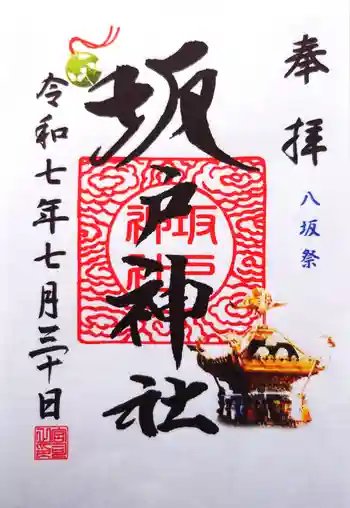 奉拝
八坂祭
坂戸神社
令和七年七月三十日
坂戸
神社